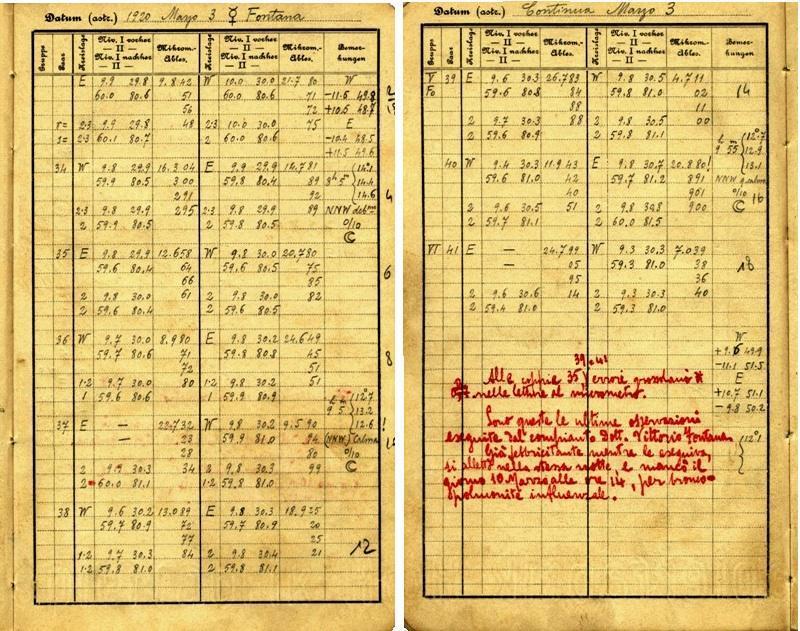 Datum (astr.) 1920 Marzo 3 ☿ Fontana
Gruppe Paar Kreislage Niv. I vorher — II — Niv. I nachher — II — Mikrom.-Ables. Kreislage Niv. I vorher — II — Niv. I nachher — II — Mikrom.-Ables. Bemerkungen
E 9.9 29.8 9.842 W 10.0 30.0 21.7 80 W
60.0 80.6 51 60.0 80.6 71 -11.5 49.8
56 72 +10.5 48.7
r= 2.3 9.9 29.8 48 2.3 10.0 30.0 75 E
1= 2.3 60.1 80.7 2 60.0 80.6 -10.4 48.5
+11.5 49.6
34 W 9.8 29.9 16.304 E 9.9 29.9 12.781
59.9 80.5 300 59.8 80.4 89 14.4
291 92 14.6
2.3 9.8 29.9 295 2.3 9.8 29.9 89 NNW
2 59.9 80.5 2 59.8 80.5 0/10
4
35 E 9.8 29.9 12.658 W 9.8 30.0 20.780
59.6 80.4 64 59.6 80.5 75
66 85
2 9.8 30.0 61 2 9.8 30.0 82
2 59.6 80.4 2 59.6 80.5
6
36 W 9.7 30.0 8.980 E 9.8 30.2 24.649
59.7 80.6 71 59.8 80.8 45
72 51
1.2 9.7 30.0 80 1.2 9.8 30.2 51
1 59.6 80.6 1 59.9 80.9
8
37 E — 22.732 W 9.5 90 12.6
— 23 59.9 81.0 94 (NNW) Calma
28 80 0/10
2 9.9 30.3 34 2 9.8 30.3 99
2 60.0 81.1 1.2 59.8 81.0
38 W 9.6 30.2 13.089 E 9.8 30.3 18.925
59.7 80.9 72 59.7 80.9 20
77 25
1.2 9.7 30.3 84 2 9.8 30.4 21
1.2 59.8 81.0 2 59.8 81.1
12
Datum (astr.) Continua Marzo 3
Gruppe Paar Kreislage Niv. I vorher — II — Niv. I nachher — II — Mikrom.-Ables. Kreislage Niv. I vorher — II — Niv. I nachher — II — Mikrom.-Ables. Bemerkungen
V 39 E 9.6 30.3 26.783 W 9.8 30.5 4.711
Fo 59.6 80.8 84 59.8 81.0 02 14
88 11
2 9.7 30.3 88 2 9.8 30.5 00
2 59.6 80.9 2 59.8 81.1
9 55 12.9
40 W 9.4 30.3 11.943 E 9.8 30.7 20.880! 13.1
59.6 81.0 42 59.7 81.2 891 NNW
40 901 0/10 16
2 9.6 30.5 51 2 9.8 30.8 900
2 59.7 81.1 2 60.0 81.5
VI 41 E — 24.799 W 9.3 30.3 7.039
— 05 59.3 81.0 38 18
95 36
2 9.6 30.6 14 2 9.3 30.3 40
2 59.4 81.0 2 59.3 81.0
W
+9.6 49.9
-11.1 51.5
E
+10.7 51.1
-9.8 50.2
39 e 41
Alle coppie 35) errori grossolani
nelle letture al micrometro.
Sono queste le ultime osservazioni
eseguite dal compianto Dott. Vittorio Fontana
Già febbricitante mentre le eseguiva,
si allettò nella stessa notte, e mancò il
giorno 10 Marzo alle ore 14, per bronco-
polmonite influenzale.